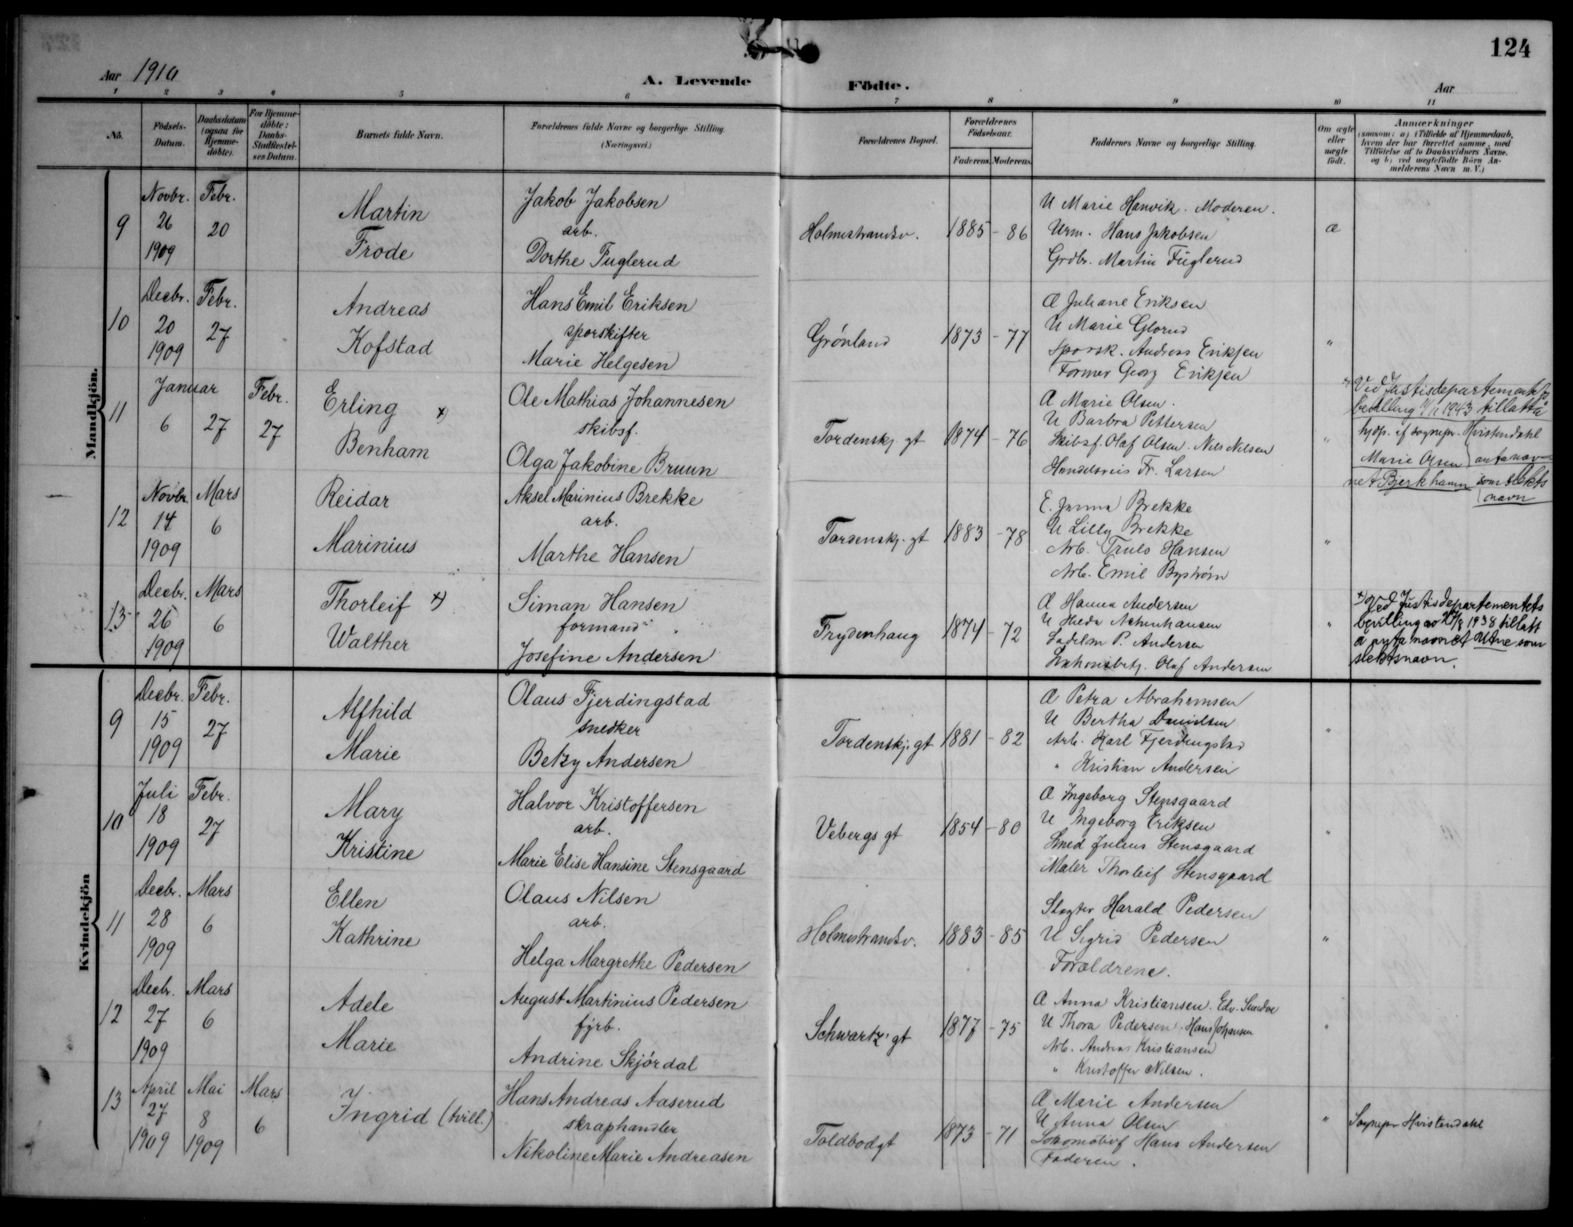 124
Aar 1910
A. Levende Födte.
Aar
1 2 3 4 5 6 7 8 9 10 11
No.
Födsels-Datum.
Daabsdatum (ogsaa for Hjemme-döbte).
For Hjemme-döbte: Daabs-Stadfæstel-ses Datum.
Barnets fulde Navn.
Forældrenes fulde Navne og borgerlige Stilling.
(Næringsvei.)
Forældrenes Bopæl.
Forældrenes Födselsaar.
Faderens Moderens
Faddernes Navne og borgerlige Stilling.
Om ægte eller uægte födt.
Anmærkninger
(saasom: a) i Tilfælde af Hjemmedaab,
hvem der har forrettet samme, med
Tilföielse af to Daabsvidners Navne.
og b) ved uægtefödte Börn An-
melderens Navn m. V.)
Mandkjön.
9
Novbr. 26 1909
Febr. 20
Martin Frode
Jakob Jakobsen
arb.
Dorthe Fuglerud
Holmestrandsv.
1885 - 86
U Marie Hanvik. Moderen.
Urm. Hans Jakobsen
Grdbr. Martin Fuglerud
æ
10
Decbr. 20 1909
Febr. 27
Andreas Kofstad
Hans Emil Eriksen
sporskifter
Marie Helgesen
Grönland
1873 - 77
Æ Juliane Eriksen
U Marie Glorud
Sporsk. Andreas Eriksen
Former Georg Eriksen
"
11
Januar 6
27
Febr. 27
Erling x)
Benham
Ole Mathias Johannesen
skibsf.
Olga Jakobine Bruun
Tordenskj. gt
1874 - 76
Æ Marie Olsen.
U Barbra Pettersen
Skibsf. Olaf Olsen. Nils Nilsen
Handelsreis Fr. Larsen
"
x) Ved Justisdepartementets
bevilling 1943 tillatt å
hjdp. af sognepr. Hvistendahl
Marie Olsen anta nav-
net Bjerkhamn som slekts
navn
12
Novbr 14 1909
Mars 6
Reidar Marinius
Aksel Marinius Brekke
arb.
Marthe Hansen
Tordenskj. gt
1883 - 78
E. Janna Brekke
U Lilly Brekke
Arb. Truls Hansen
Arb. Emil Byström
"
13
Decbr. 26 1909
Mars 6
Thorleif x)
Walther
Siman Hansen
formand
Josefine Andersen
Frydenhaug
1874 - 72
Æ Hanna Andersen
U Hulda
P. Andersen
Olaf Andersen
"
x) Ved Justisdepartementets
bevilling av 1938 tillatt
å nytte navnet Utne som
slektsnavn.
Kvindekjön
9
Decbr. 15 1909
Febr. 27
Alfhild Marie
Olaus Fjerdingstad
snedker
Betzy Andersen
Tordenskj. gt
1881 - 82
Æ Petra Abrahamsen
U Bertha Danielsen
Arb. Karl Fjerdingstad
" Kristian Andersen
"
10
Juli 18 1909
Febr. 27
Mary Kristine
Halvor Kristoffersen
arb.
Marie Elise Hansine Stensgaard
Vebergs gt
1854 - 80
Æ Ingeborg Stensgaard
U Ingeborg Eriksen
Smed Julius Stensgaard
Maler Thorleif Stensgaard
"
11
Decbr. 28 1909
Mars 6
Ellen Kathrine
Olaus Nilsen
arb.
Helga Margrethe Pedersen
Holmestrandsv.
1883 - 85
Slagter Harald Pedersen
U Sigrid Pedersen
Forældrene.
"
12
Decbr. 27 1909
Mars 6
Adele Marie
August Martinius Pedersen
fyrb.
Andrine Skjördal
Schwartz' gt
1877 - 75
Æ Anna Kristiansen. Edv.
U Thora Pedersen. Hans Johansen
Arb. Andreas Kristiansen
" Kristoffer Nilsen.
"
13
April 27 1909
Mai 8 1909
Mars 6
Ingrid (tvill.)
Hans Andreas Aaserud
skraphandler
Nikoline Marie Andreasen
Toldbodgt
1873 - 71
Æ Marie Andersen
U Anna Olsen
Lokomotivf Hans Andersen
Faderen.
"
Sognepr Hvistendahl